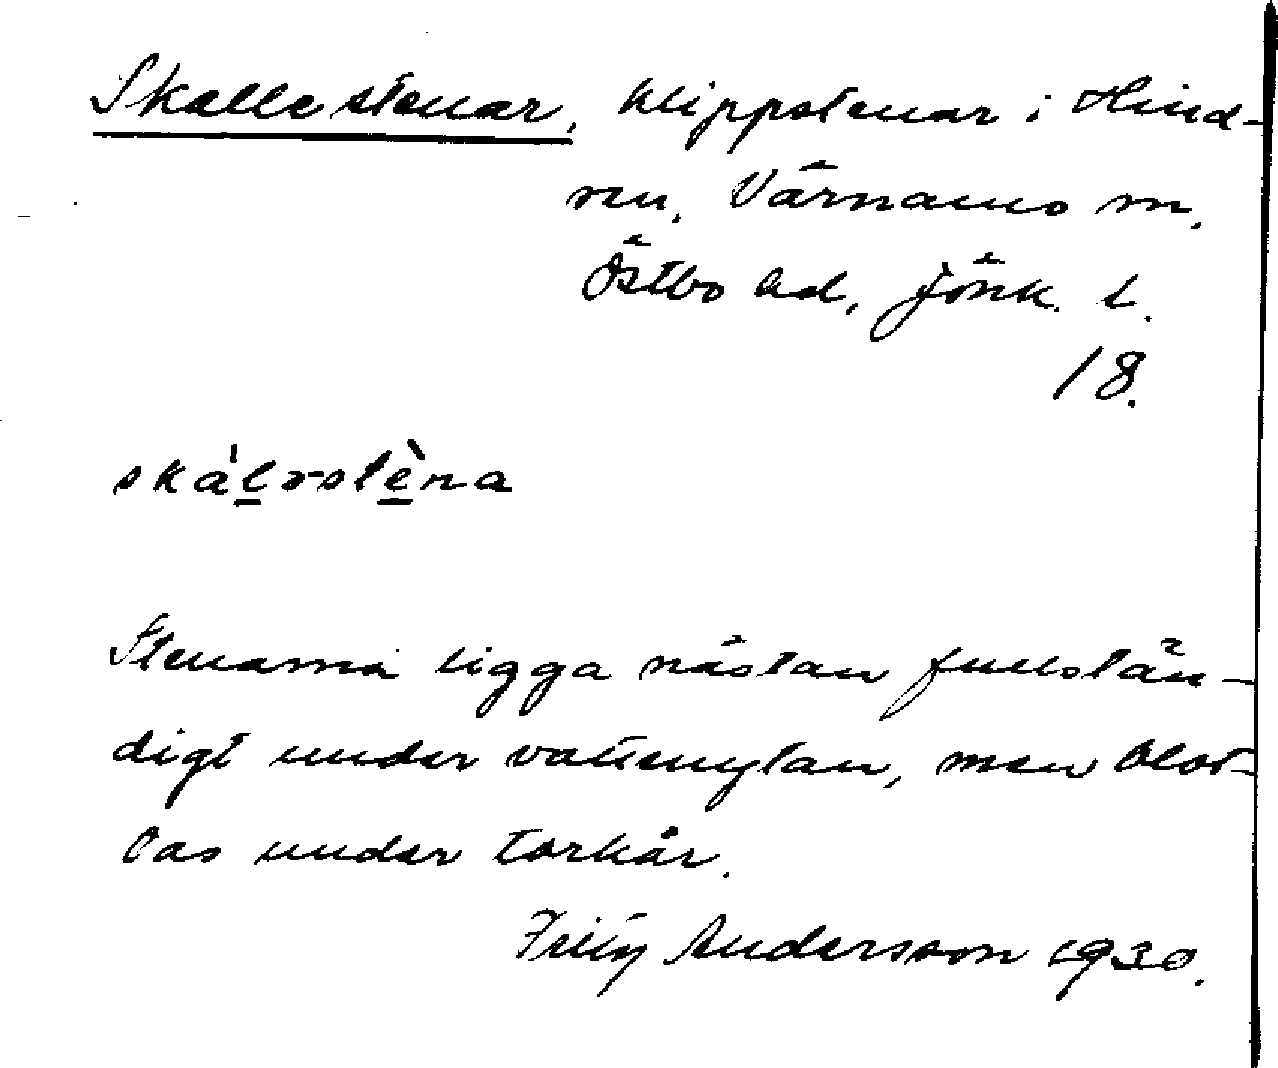 Skallestenar, klippstenar i Hind-
ren. Värnamo m.
Östbo hd, Jönk. l.
18.
skálrstèna
Stenarna ligga nästan fullstän-
digt under vattenytan, men blot-
tas under torkår.
Andersson 1930.